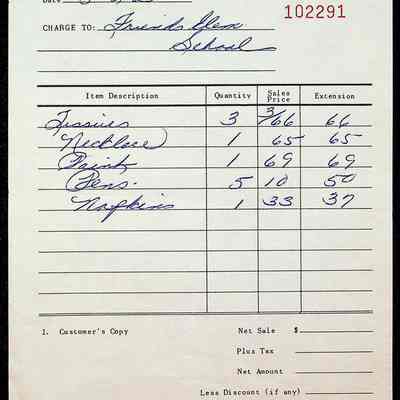 Date
102291
CHARGE TO: Friends Glen
School
Item Description Quantity Sales Price Extension
Tissues 3 3/66 66
Necklace 1 65 65
Paint 1 69 69
Pens. 5 10 50
Napkins 1 33 37
1. Customer's Copy Net Sale $
Plus Tax
Net Amount
Less Discount (if any)